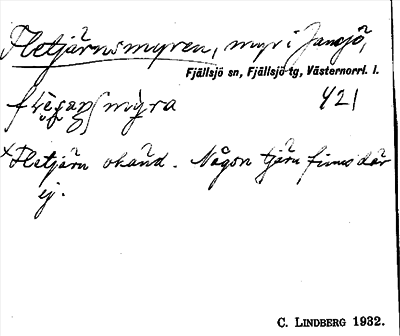 Fletjärnsmyren, myr i Jansjö,
Fjällsjö sn, Fjällsjö tg, Västernorrl. l.
421
×Fletjärn okänd. Någon tjärn finns där
ej.
C. LINDBERG 1932.